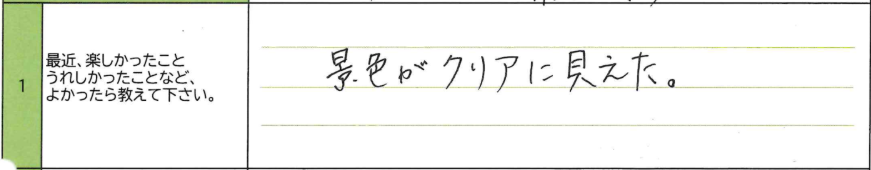 1
最近、楽しかったこと
うれしかったことなど、
よかったら教えて下さい。
景色がクリアに見えた。